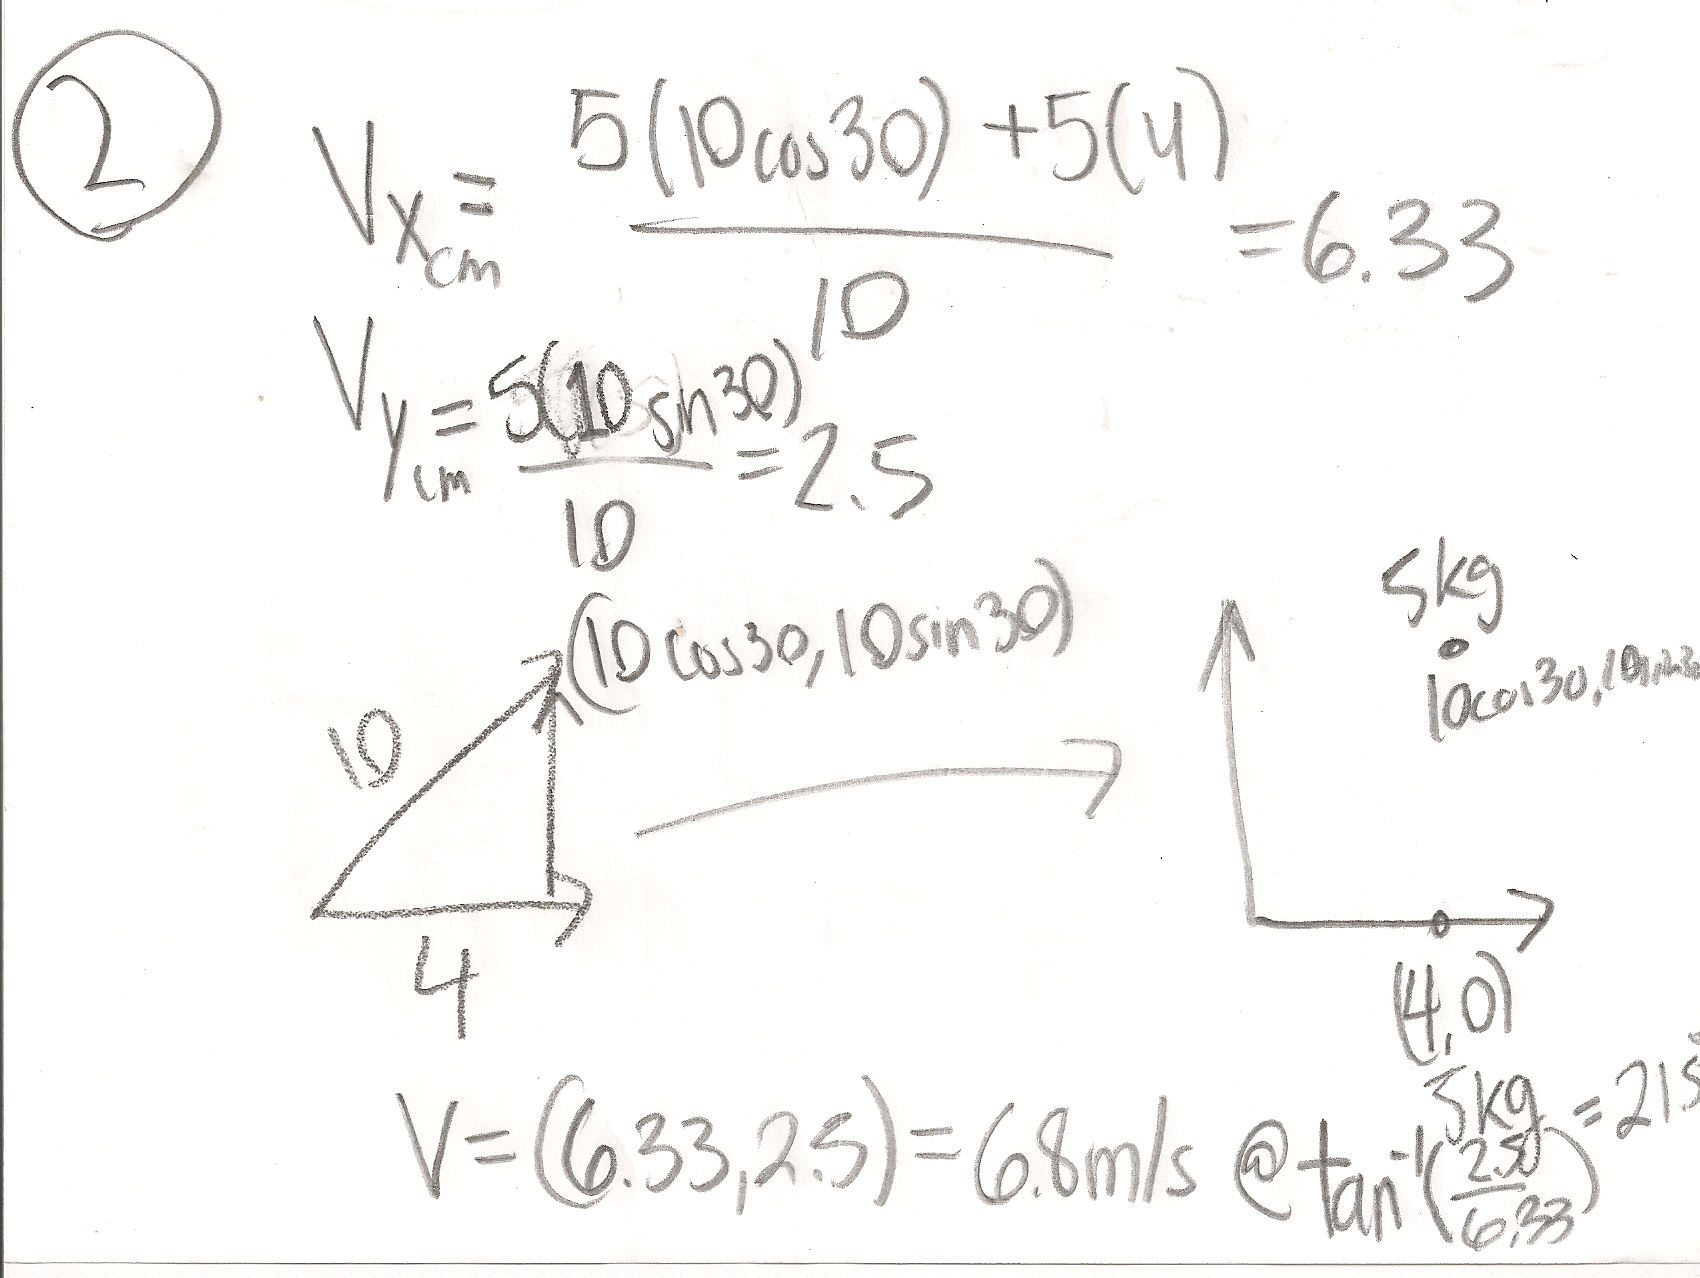 2
Vx_cm = 5(10cos30) + 5(4) / 10 = 6.33
Vy_cm = 5(10 sin30) / 10 = 2.5
(10cos30, 10sin30)
10
4
5kg
10cos30,
(4,0)
5kg
V = (6.33, 2.5) = 6.8m/s @ tan⁻¹(2.50/6.33) = 21.5